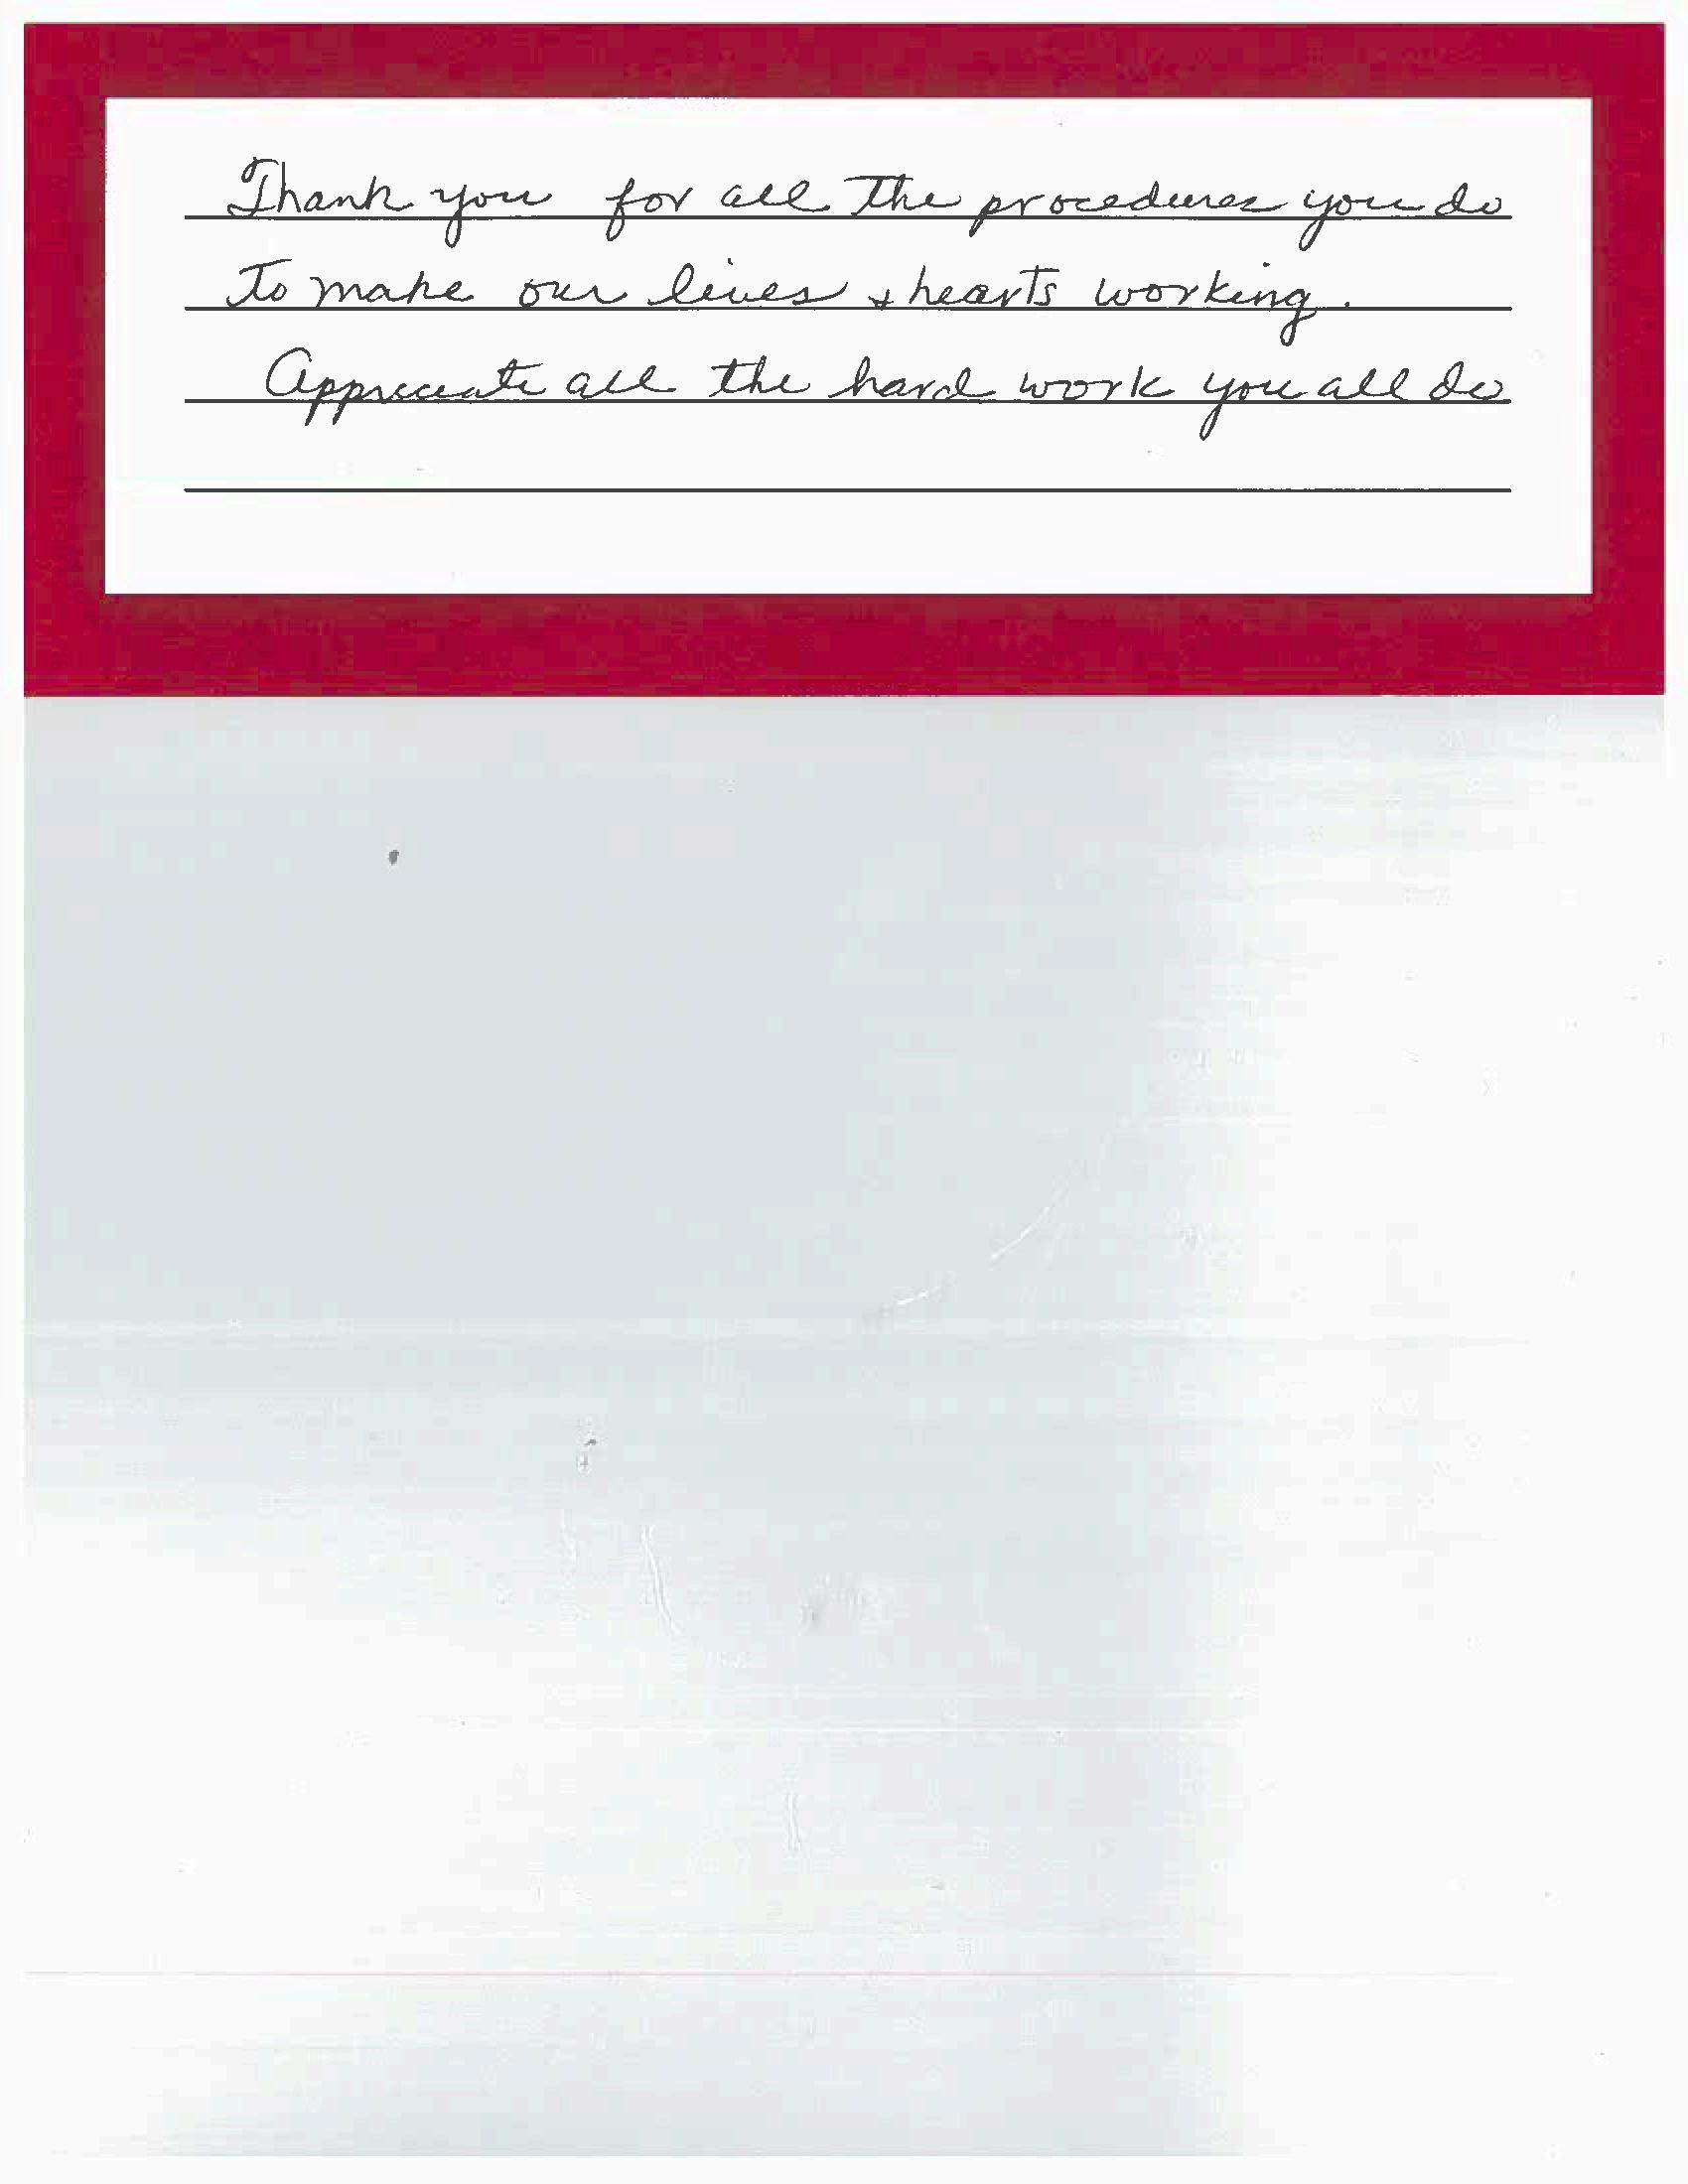 Thank you for all the procedures you do
to make our lives + hearts working.
Appreciate all the hard work you all do